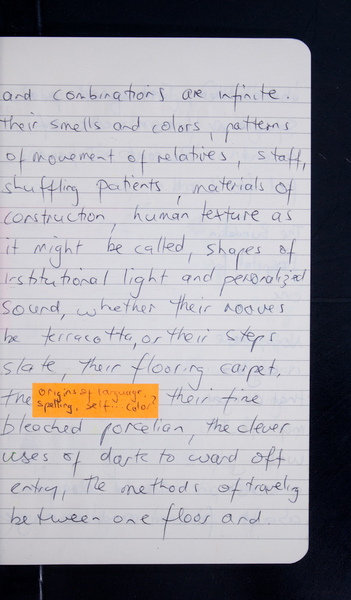 and combinations are infinite.
their smells and colors, patterns
of movement of relatives, staff,
shuffling patients, materials of
construction, human texture as
it might be called, shapes of
institutional light and personalized
sound, whether their
be terracotta, or their steps
slate, their flooring carpet,
the
origins of language,
spelling, self color?
their fine
bleached porcelian, the clever
uses of dark to ward off
entry, the methods of traveling
between one floor and